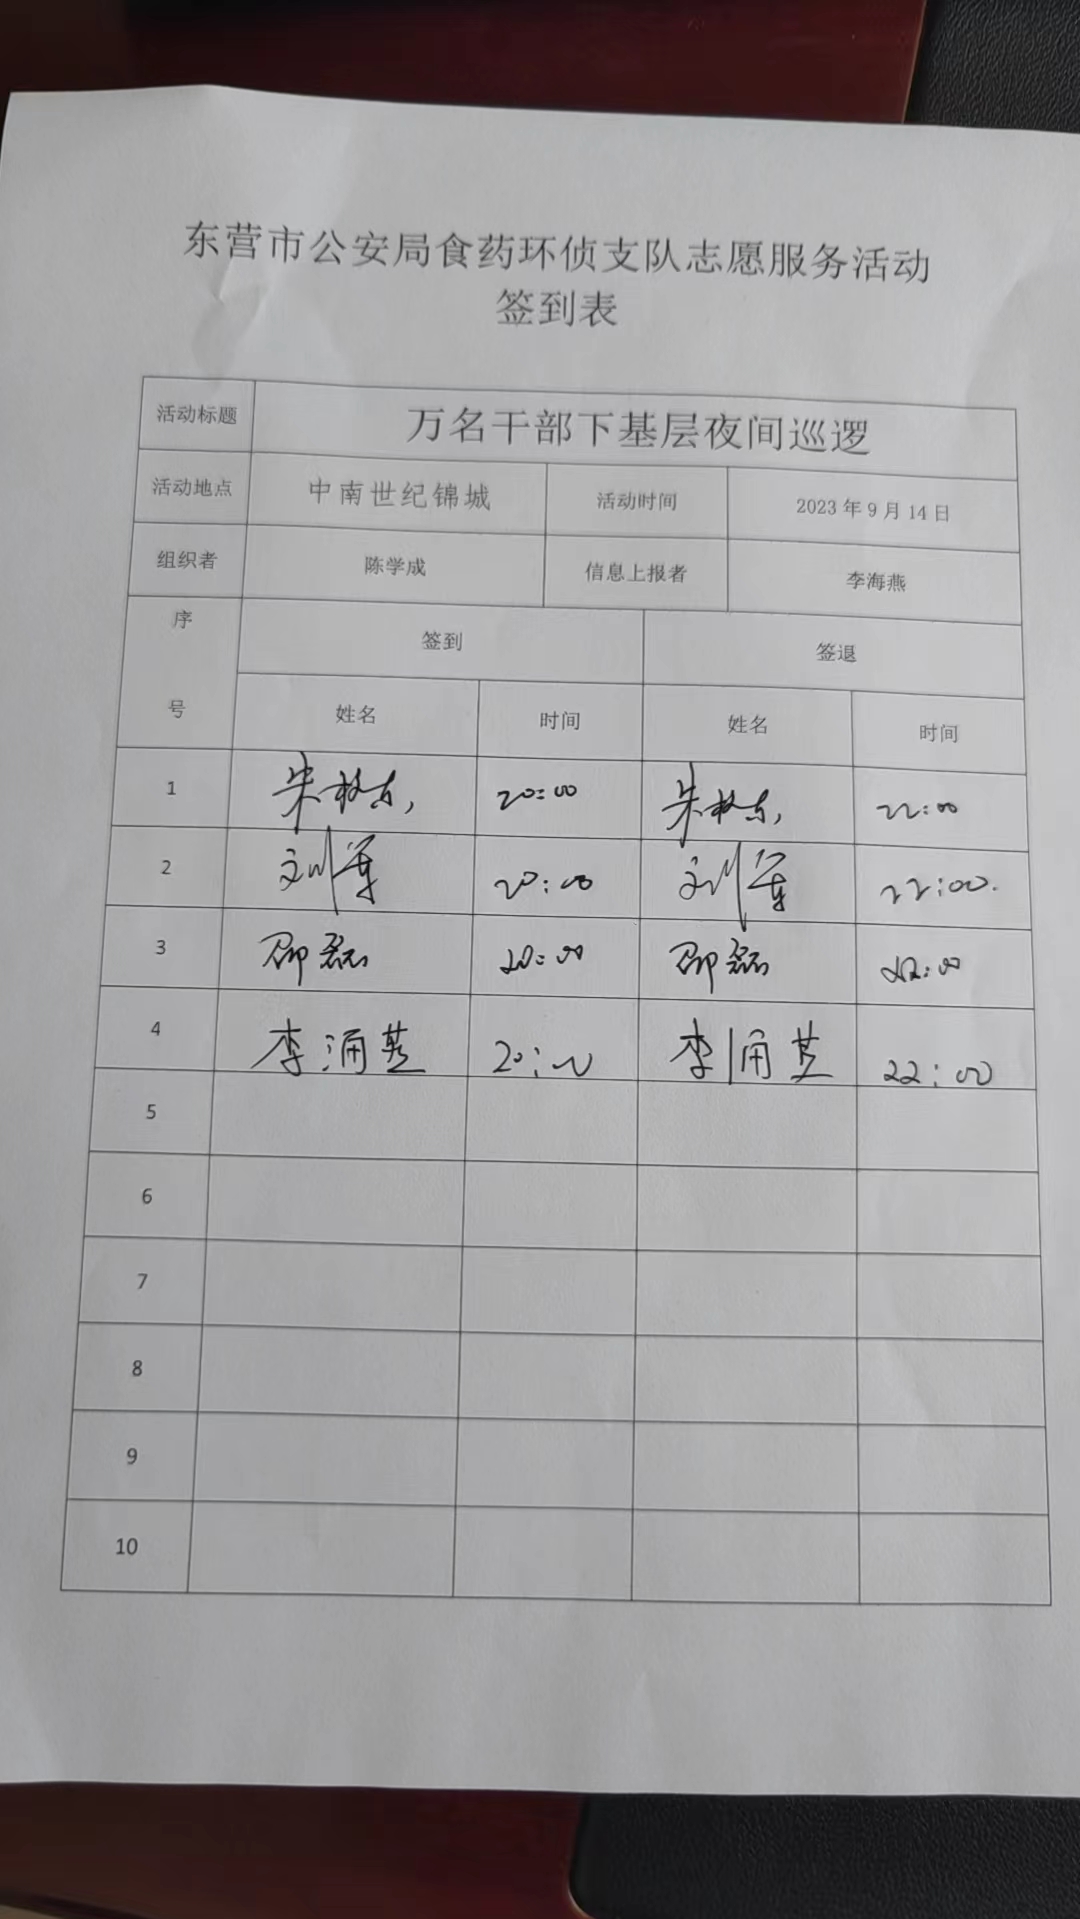 东营市公安局食药环侦支队志愿服务活动
签到表
活动标题 万名干部下基层夜间巡逻
活动地点 中南世纪锦城 活动时间 2023年9月14日
组织者 陈学成 信息上报者 李海燕
序号 签到 签退
姓名 时间 姓名 时间
1 朱 东 20:00 朱 东 22:00
2 刘军 20:00 刘军 22:00
3 邵磊 20:00 邵磊 22:00
4 李涌芝 20:00 李涌芝 22:00
5
6
7
8
9
10